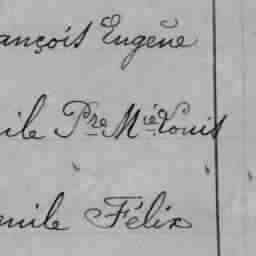 ançois Eugène
ile Pre Mie Louis
mile Félix